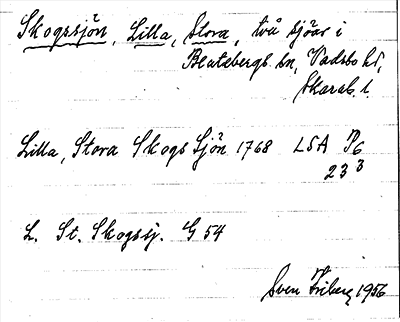 Skogssjön, Lilla, Stora, två sjöar i
Blutsbergs sn, Vadsbo hd,
Skarab. l.
Lilla, Stora Skogs Sjön 1768 LSA P6
23 3
L. St. Skogssj. G 54
Sven Friberg 1956